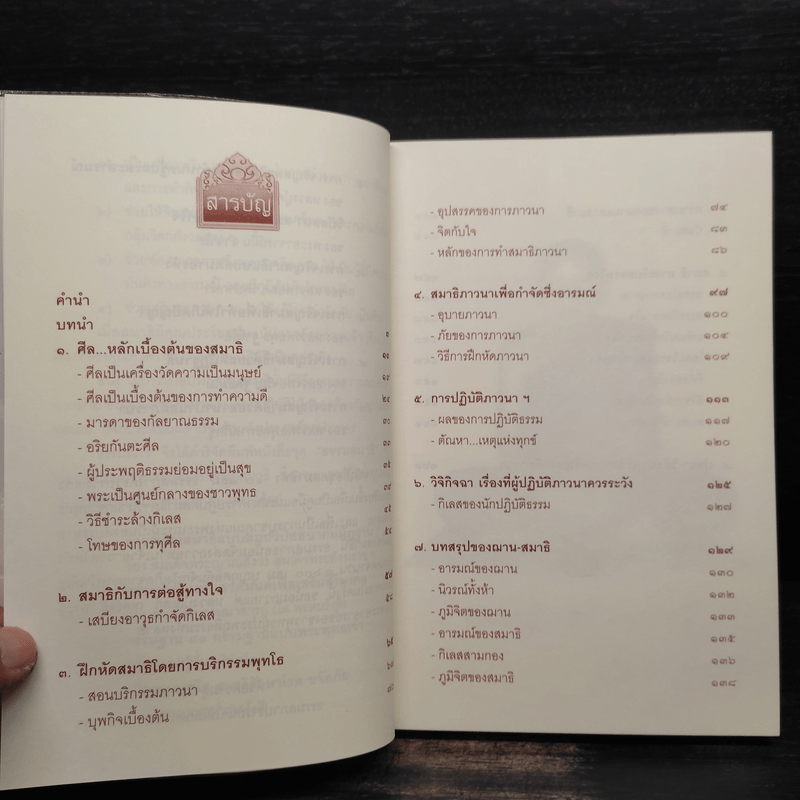 สารบัญ
คำนำ
บทนำ
๑. ศีล...หลักเบื้องต้นของสมาธิ
- ศีลเป็นเครื่องวัดความเป็นมนุษย์
- ศีลเป็นเบื้องต้นของการทำความดี ๒๔
- มารดาของกัลยาณธรรม ๓๐
- อริยกันตะศีล
- ผู้ประพฤติธรรมย่อมอยู่เป็นสุข ๓๕
- พระเป็นศูนย์กลางของชาวพุทธ
- วิธีชำระล้างกิเลส
- โทษของการทุศีล ๕๔
๒. สมาธิกับการต่อสู้ทางใจ ๕๗
- เสบียงอาวุธกำจัดกิเลส ๕๘
๓. ฝึกหัดสมาธิโดยการบริกรรมพุทโธ
- สอนบริกรรมภาวนา
- บุพกิจเบื้องต้น
- อุปสรรคของการภาวนา ๗๔
- จิตกับใจ ๘๓
- หลักของการทำสมาธิภาวนา ๘๖
๔. สมาธิภาวนาเพื่อกำจัดซึ่งอารมณ์ ๙๗
- อุบายภาวนา ๑๐๐
- ภัยของการภาวนา ๑๐๔
- วิธีการฝึกหัดภาวนา ๑๐๙
๕. การปฏิบัติภาวนา ฯ ๑๑๓
- ผลของการปฏิบัติธรรม ๑๑๗
- ตัณหา...เหตุแห่งทุกข์ ๑๒๐
๖. วิจิกิจฉา เรื่องที่ผู้ปฏิบัติภาวนาควรระวัง ๑๒๕
- กิเลสของนักปฏิบัติธรรม ๑๒๗
๗. บทสรุปของฌาน-สมาธิ ๑๒๙
- อารมณ์ของฌาน ๑๓๐
- นิวรณ์ทั้งห้า ๑๓๒
- ภูมิจิตของฌาน ๑๓๓
- อารมณ์ของสมาธิ ๑๓๕
- กิเลสสามกอง ๑๓๖
- ภูมิจิตของสมาธิ ๑๓๘